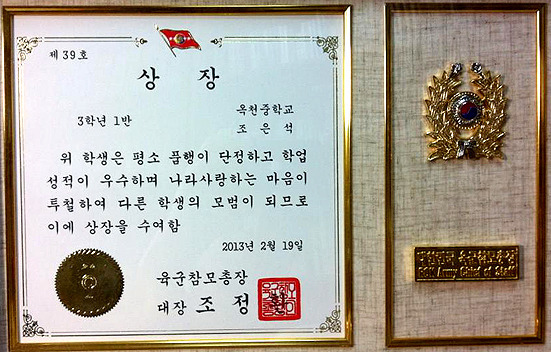 제 39호
상 장
3학년 1반
옥천중학교
조 은 석
위 학생은 평소 품행이 단정하고 학업
성적이 우수하며 나라사랑하는 마음이
투철하여 다른 학생의 모범이 되므로
이에 상장을 수여함
2013년 2월 19일
육군참모총장
대장 조 정 환
대한민국 육군참모총장
ROK Army Chief of Staff